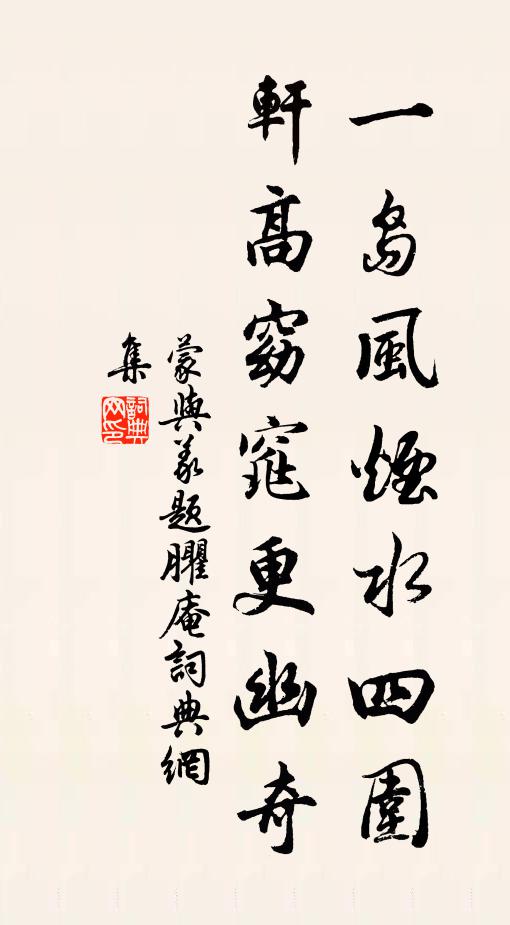 一島風煙水四圍
軒高窈窕更幽奇
蒙與義題臞庵詞典網
集
詞典網印